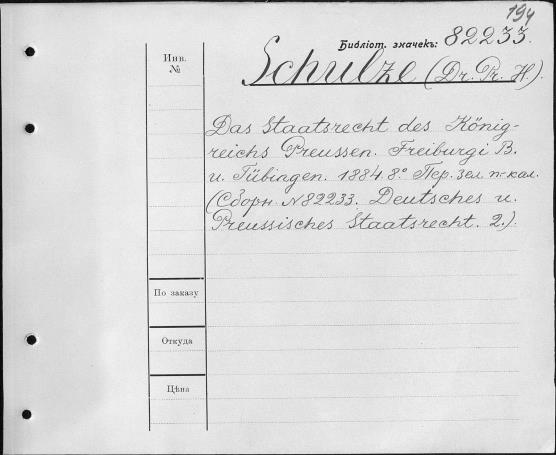 194
Библіот. значекъ: 82233.
Инв.
№
Schulze (Dr. Pr. H.)
Das Staatsrecht des König-
reichs Preussen. Freiburg i B.
u. Tübingen. 1884. 8° Пер. зел п-кал.
(Сборн. N 82233. Deutsches u.
Preussisches Staatsrecht. 2.).
По заказу
Откуда
Цѣна